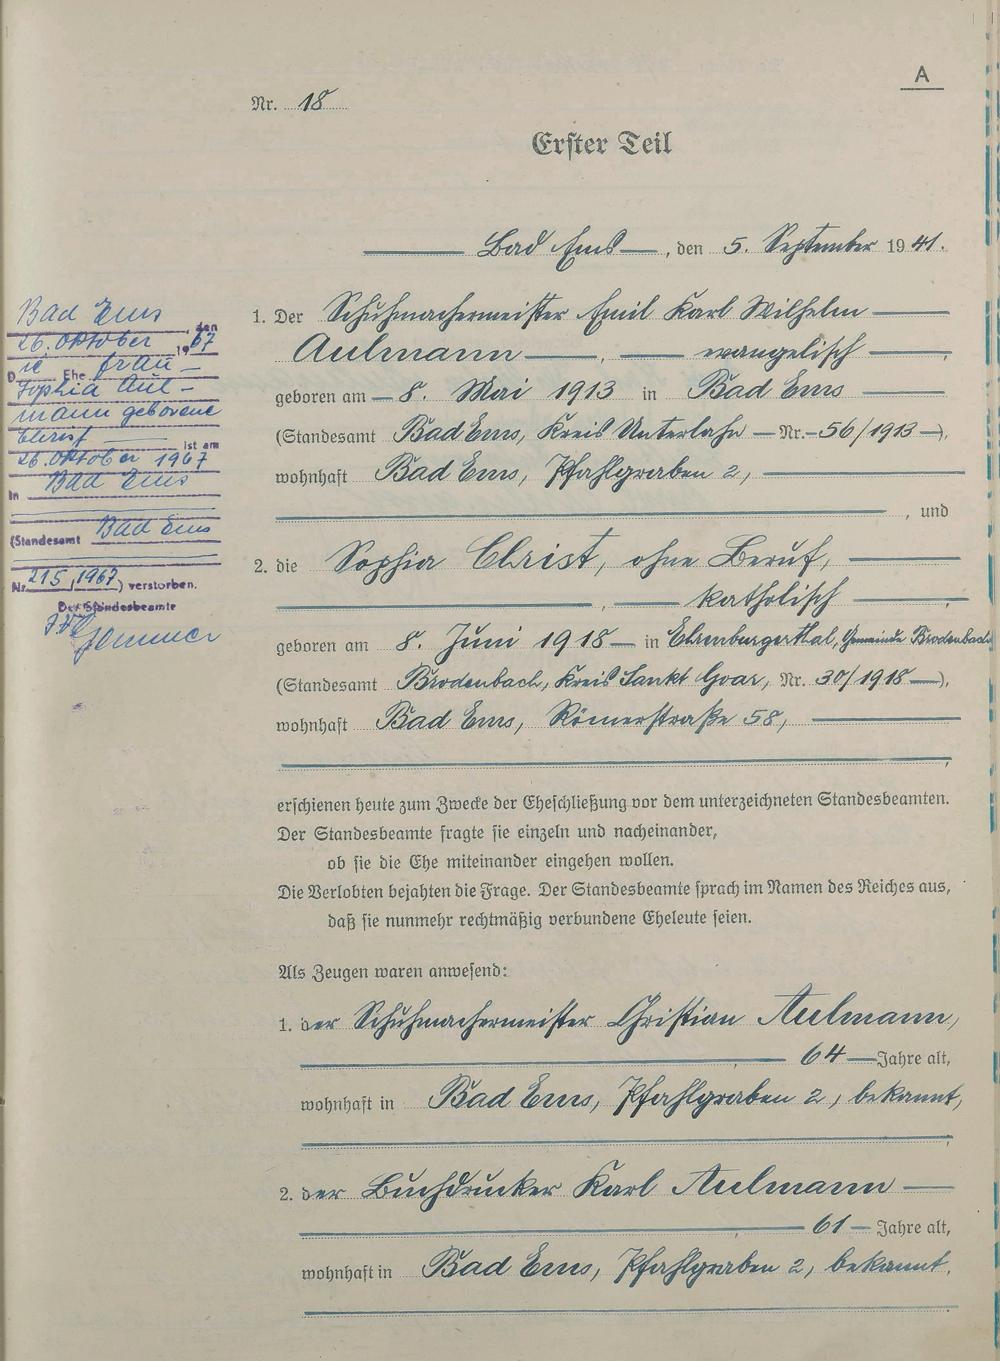 A
Nr. 18
Erster Teil
Bad Ems, den 5. September 1941.
1. Der Schuhmachermeister Emil Karl Wilhelm
Aulmann, evangelisch,
geboren am 8. Mai 1913 in Bad Ems
(Standesamt Bad Ems, Kreis Unterlahn Nr. 56/1913),
wohnhaft Bad Ems, Pfahlgraben 2,
, und
2. die Sophia Christ, ohne Beruf,
, katholisch,
geboren am 8. Juni 1918 in Ehrenburgerthal, Gemeinde Brodenbach
(Standesamt Brodenbach, Kreis Sankt Goar, Nr. 30/1918),
wohnhaft Bad Ems, Römerstraße 58,
erschienen heute zum Zwecke der Eheschließung vor dem unterzeichneten Standesbeamten.
Der Standesbeamte fragte sie einzeln und nacheinander,
ob sie die Ehe miteinander eingehen wollen.
Die Verlobten bejahten die Frage. Der Standesbeamte sprach im Namen des Reiches aus,
daß sie nunmehr rechtmäßig verbundene Eheleute seien.
Als Zeugen waren anwesend:
1. der Schuhmachermeister Christian Aulmann,
64 Jahre alt,
wohnhaft in Bad Ems, Pfahlgraben 2, bekannt,
2. der Buchdrucker Karl Aulmann
61 Jahre alt,
wohnhaft in Bad Ems, Pfahlgraben 2, bekannt.
Bad Ems, den
26. Oktober 1967
Die Ehefrau
Sophia Aul-
mann geborene
Christ ist am
26. Oktober 1967
in Bad Ems
(Standesamt Bad Ems
Nr. 215/1967) verstorben.
Der Standesbeamte